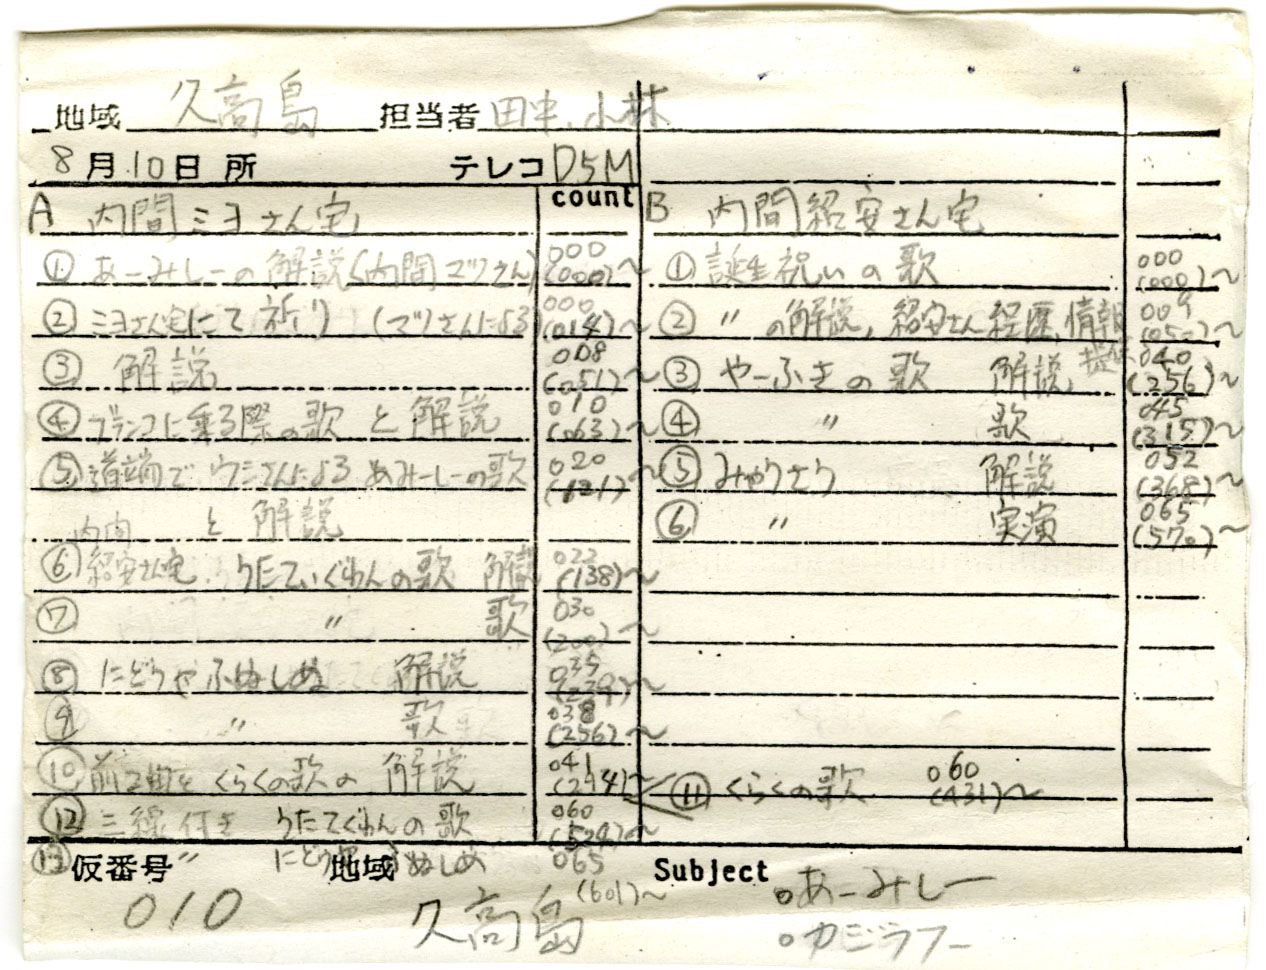 地域 久高島 担当者 田中、小林
8月10日 所 テレコ D5M
count
A 内間ミヨさん宅
① あーみしーの解説(内間マツさん) 000 (000)〜
② ミヨさん宅にて祈り (マツさんによる) 000 (014)〜
③ 解説 008 (051)〜
④ ブランコに乗る際の歌と解説 010 (063)〜
⑤ 道端で ウシさんによる あみーしーの歌 020 (121)〜
と 解説
⑥ 内間紹安さん宅 うたてぃぐわんの歌 解説 022 (138)〜
⑦ 〃 歌 030 (200)〜
⑧ にどうやふぬしぬ 解説 035 (239)〜
⑨ 〃 歌 038 (256)〜
⑩ 前2曲と くらくの歌の 解説 041 (294)〜
⑪ くらくの歌 060 (431)〜
⑫ 三線付き うたてぐわんの歌 060 (524)〜
⑬ 〃 にどうやふぬしぬ 065 (601)〜
B 内間紹安さん宅
① 誕生祝いの歌 000 (000)〜
② 〃 の解説, 紹安さん経歴、情報提供 009 (050)〜
③ やーふきの歌 解説 040 (256)〜
④ 〃 歌 045 (315)〜
⑤ みゃうさう 解説 052 (368)〜
⑥ 〃 実演 065 (570)〜
仮番号 地域 Subject
010 久高島 ○あーみしー
○カジラフー